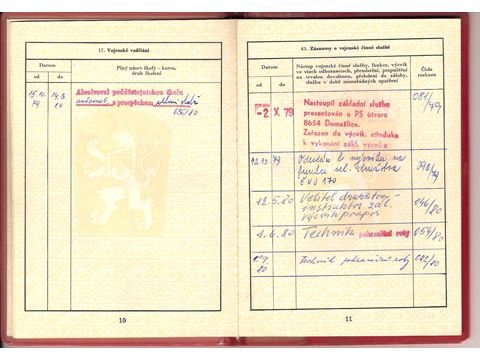 17. Vojenské vzdělání
Datum
od
do
Plný název školy - kursu,
druh školení
15.10.
79
14.3.
80
Absolvoval poddůstojnickou školu
automob. s prospěchem velmi dobře
10
41. Záznamy o vojenské činné službě
Datum
od
do
Nástup vojenské činné služby, funkce, výcvik
ve všech odbornostech, přemístění, propuštění
na trvalou dovolenou, přeložení do zálohy,
služba v době mimořádných opatření
Číslo
rozkazu
-2. X. 79
Nastoupil základní službu
presentován u PS útvaru
8654 Domažlice.
Zařazen do výcvik. střediska
k vykonání zákl. výcviku
084/79
12.10.79
na
funkce vel. družstva
090/79
12.5.80
Velitel družstva-
instruktor zákl.
046/80
1.6.80
Technik pohraniční roty
054/80
1.9.
80
Technik pohraniční roty
082/80
11